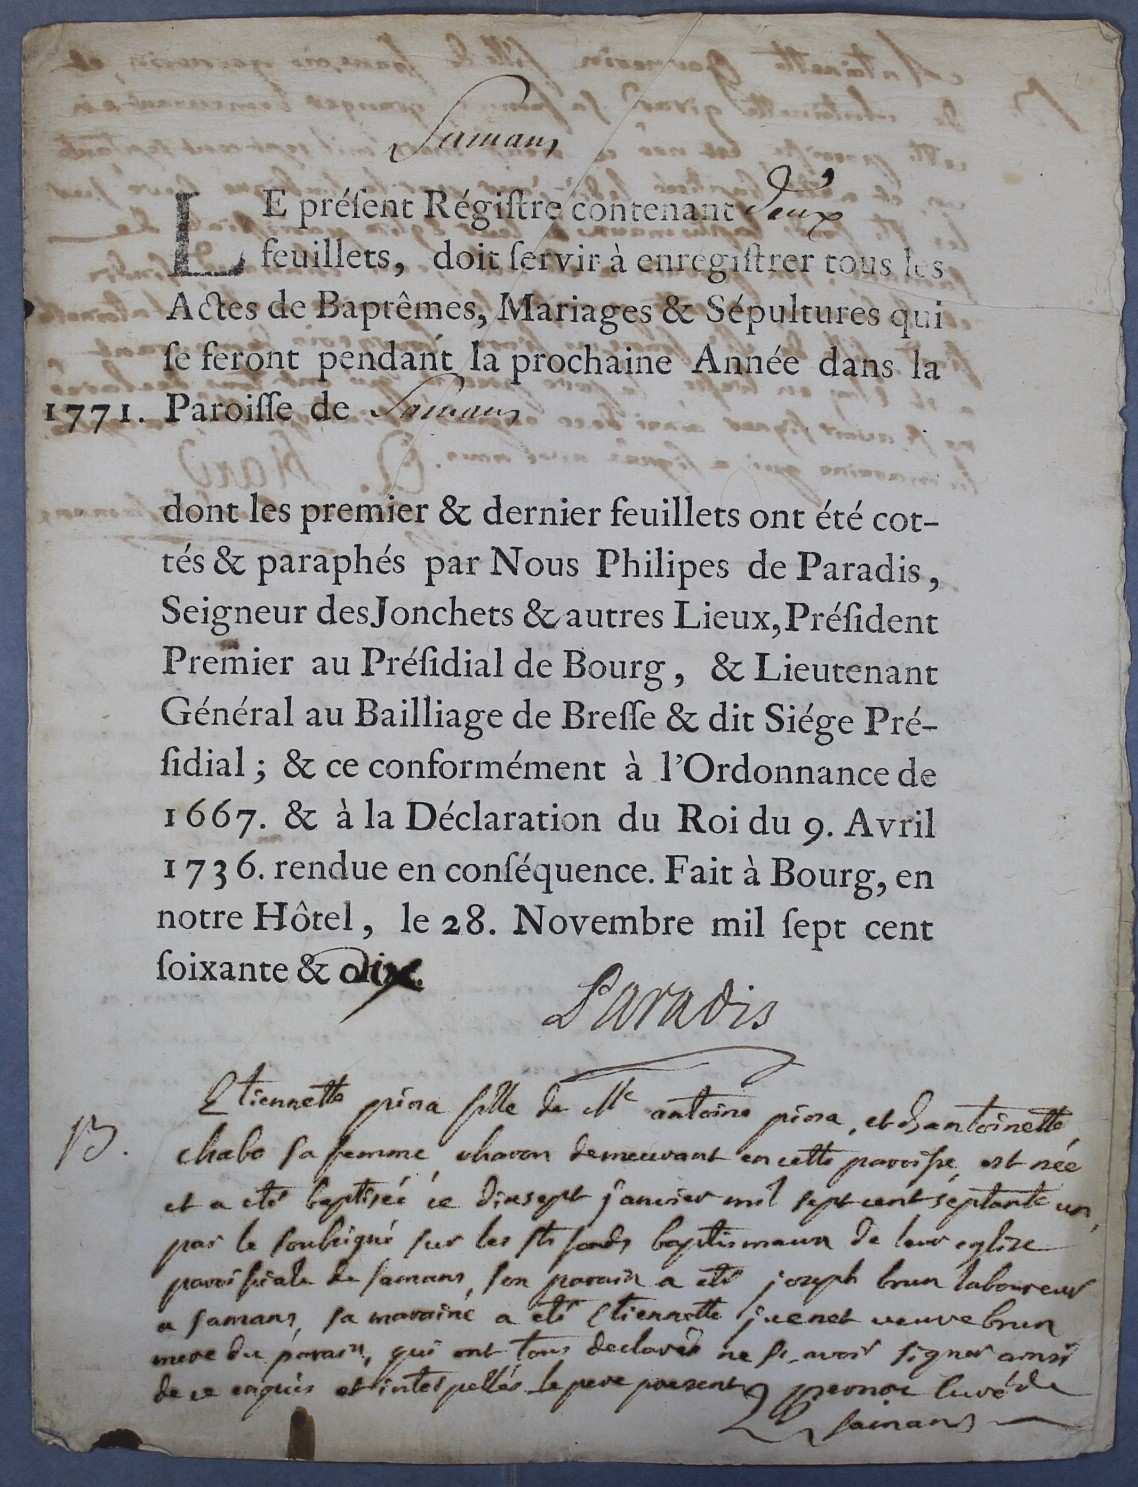 Samans
LE préſent Régiſtre contenant deux
feuillets, doit ſervir à enregiſtrer tous les
Actes de Baptêmes, Mariages & Sépultures qui
ſe feront pendant la prochaine Année dans la
1771. Paroiſſe de Samans
dont les premier & dernier feuillets ont été cot-
tés & paraphés par Nous Philipes de Paradis,
Seigneur des Jonchets & autres Lieux, Préſident
Premier au Préſidial de Bourg, & Lieutenant
Général au Bailliage de Breſſe & dit Siége Pré-
ſidial; & ce conformément à l'Ordonnance de
1667. & à la Déclaration du Roi du 9. Avril
1736. rendue en conſéquence. Fait à Bourg, en
notre Hôtel, le 28. Novembre mil ſept cent
ſoixante & dix.
Paradis
Etiennette fille de antoine et antoinette
B. chabo sa femme demeurant en cette paroisse, est née
et a eté baptisée ce dixsept janvier mil sept cent septante un,
par le soubsigné sur les sts fonds baptismaux de leur eglize
paroissiale de samans, son parain a eté joseph brun laboureur
a samans, sa maraine a eté Etiennette juenet veuve brun
mere du parain, qui ont tous declarés ne sçavoir signer ainsi
de ce enquis et interpellés le pere present curé de
samans